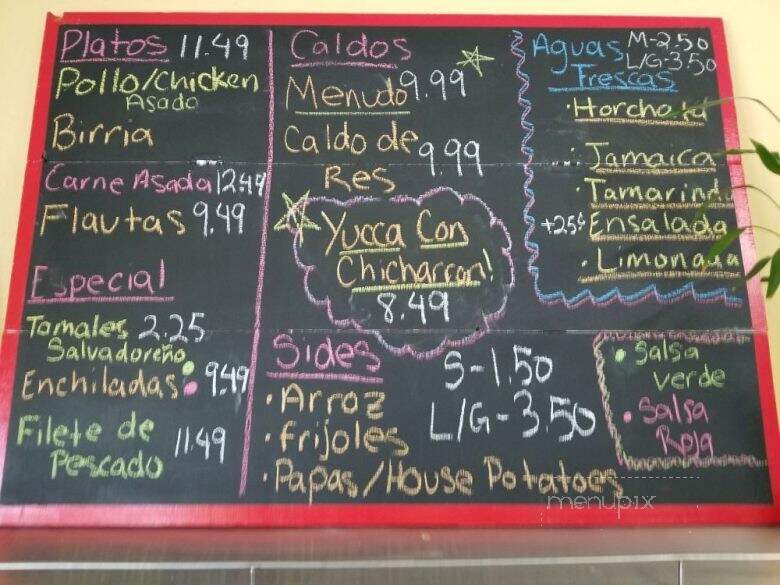 Platos 11.49
Pollo/Chicken
Asado
Birria
Carne Asada 12.49
Flautas 9.49
Especial
Tamales 2.25
Salvadoreño
Enchiladas 9.49
Filete de
Pescado 11.49
Caldos
Menudo 9.99
Caldo de
Res 9.99
Yucca Con
Chicharron!
8.49
Sides
S-1.50
L/G-3.50
· Arroz
· frijoles
· Papas/House Potatoes
Aguas
Frescas
M-2.50
L/G-3.50
· Horchata
· Jamaica
· Tamarindo
+25¢ Ensalada
· Limonada
· Salsa
verde
· Salsa
Roja
menupix